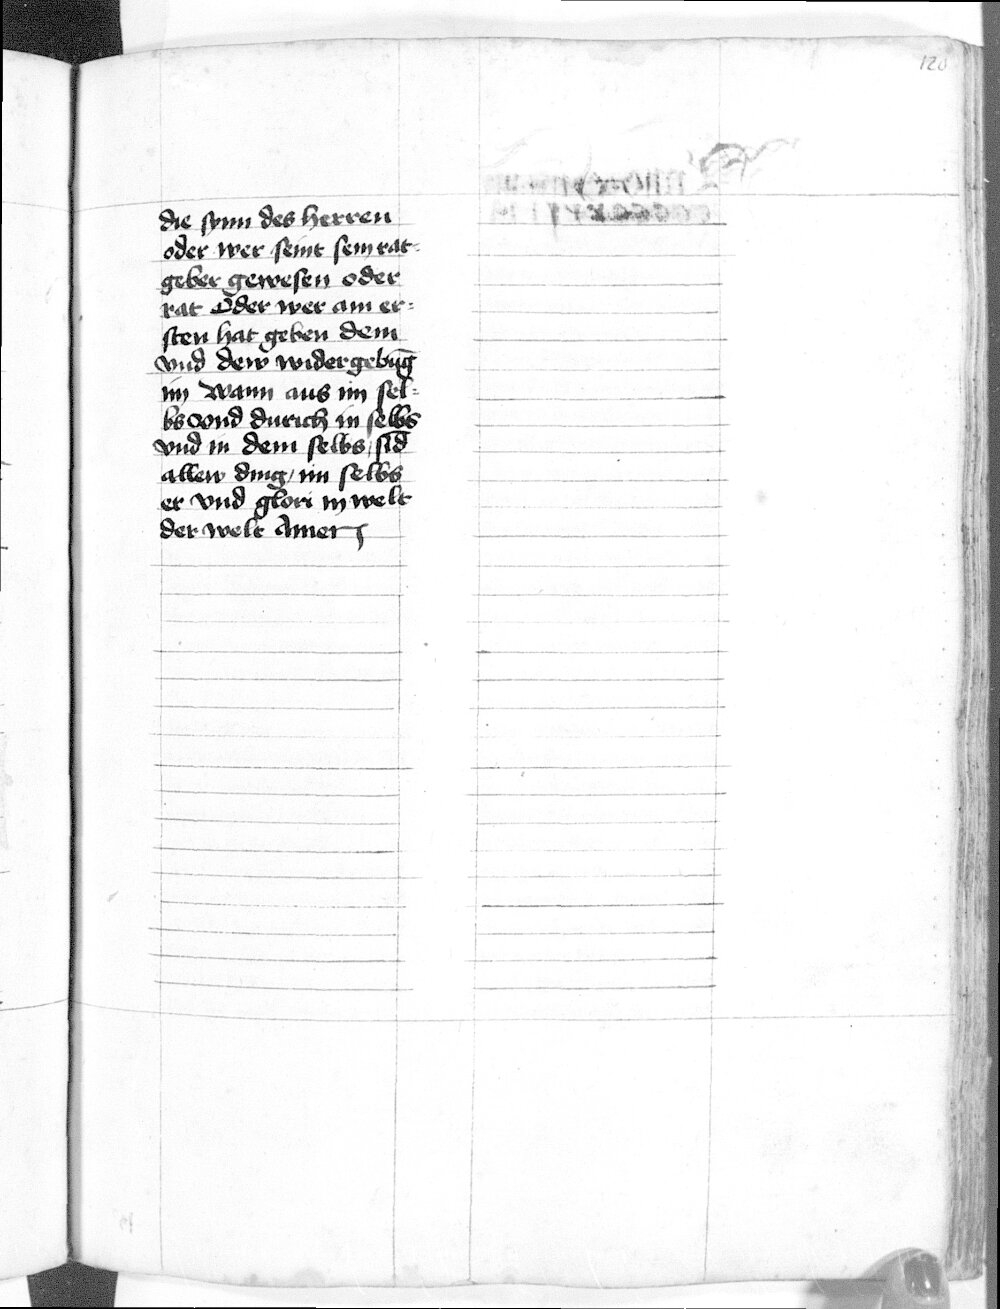 128
die synn des herren
oder wer seint sein rat-
geber gewesen oder
rat Oder wer am er-
sten hat geben dem
vnd dew widergebūg
im Wann aus im sel-
bs vnd durich in selbs
vnd in dem selbs / sīd
allew ding / im selbs
er vnd glori in welt
der welt Amen